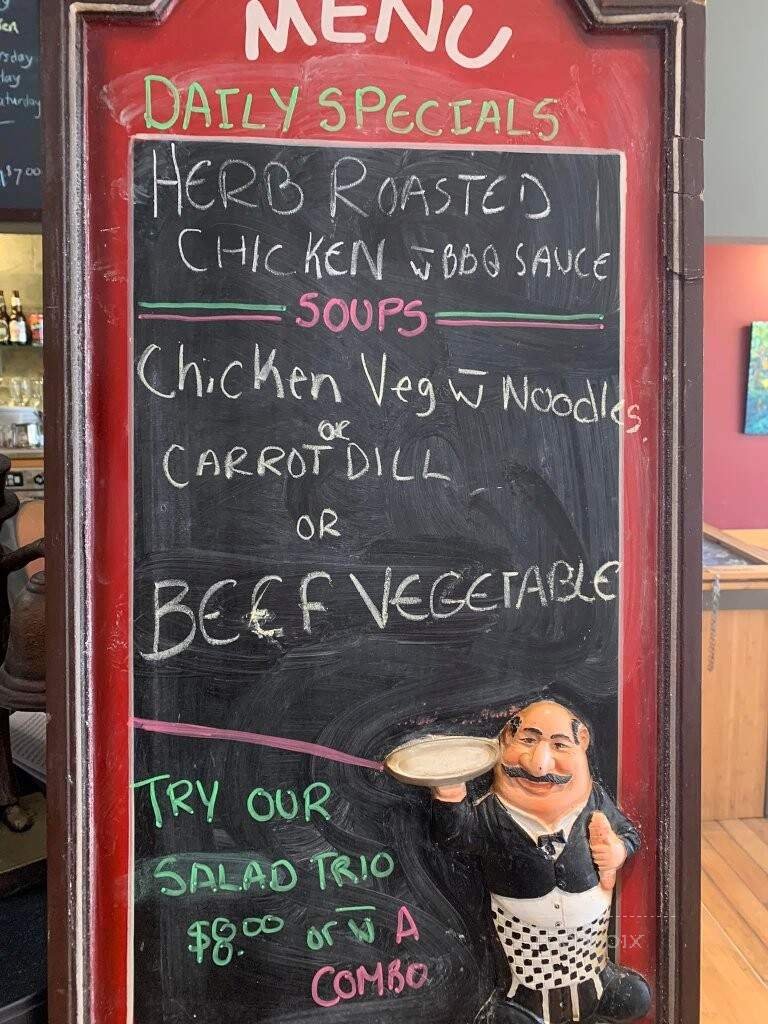 MENU
DAILY SPECIALS
HERB ROASTED
CHICKEN w̅ BBQ SAUCE
SOUPS
Chicken Veg w̅ Noodles.
or
CARROT DILL
OR
BEEF VEGETABLE
TRY OUR
SALAD TRIO
$8.00 or w̅ A
COMBO
$7.00